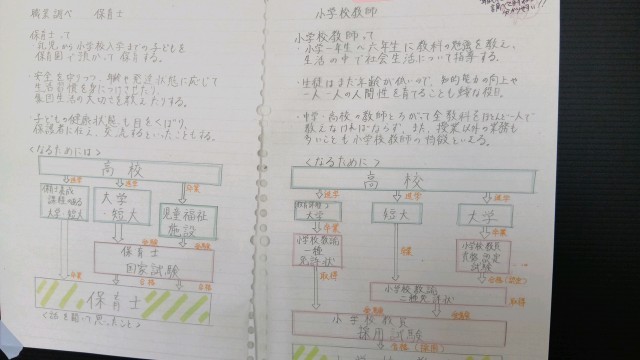 職業調べ 保育士
保育士って
・乳児から小学校入学までの子どもを
保育園で預かって保育する。
・安全を守りつつ、年齢や発達状態に応じて
生活習慣を身につけさせたり、
集団生活の大切さを教えたりする。
・子どもの健康状態にも目をくばり、
保護者に伝え、交流するといったこともする。
<なるためには>
高校
進学
進学
卒業
保育士養成
課程のある
大学・短大
大学
・短大
児童福祉
施設
受験
受験
保育士
国家試験
卒業
合格
合格
保育士
<話を聞いて思ったこと>
小学校教師
小学校教師って
・小学一年生〜六年生に教科の勉強を教え、
生活の中で社会生活について指導する。
・生徒はまだ年齢が低いので、知的能力の向上や
一人一人の人間性を育てることも主な役目。
・中学・高校の教師とちがって全教科をほとんど一人で
教えなければならず、また、授業以外の業務も
多いことも小学校教師の特徴といえる。
<なるために>
高校
進学
進学
進学
大学
短大
大学
卒業
卒業
卒業
小学校教諭
一種
免許状
小学校教員
資格認定
試験
取得
合格(認定)
小学校教諭
二種免許状
取得
受験
受験
小学校教員
採用試験
合格(採用)